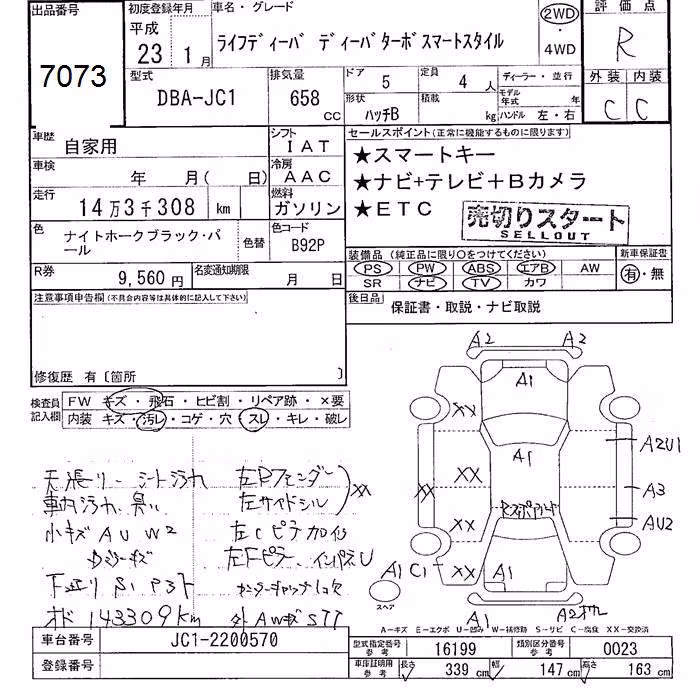 出品番号
7073
初度登録年月
平成
23 1月
車名・グレード
ライフディーバ ディーバターボスマートスタイル
2WD
・
4WD
評価点
R
型式
DBA-JC1
排気量
658 CC
ドア 5
定員 4 人
形状 ハッチB
積載 kg
ディーラー・並行
モデル年式 年
ハンドル 左・右
外装 内装
C C
車歴 自家用
シフト IAT
車検 年 月( 日)
冷房 AAC
走行 14万3千308 km
燃料 ガソリン
色 ナイトホークブラック・パール
色替
色コード B92P
R券 9,560 円
名変通知期限 月 日
セールスポイント(正常に機能するものに限ります)
★スマートキー
★ナビ+テレビ+Bカメラ
★ETC
売切りスタート
SELLOUT
装備品 (純正品に限り○をつけてください)
PS PW ABS エアB AW
SR ナビ TV カワ
新車保証書
有・無
後日品 保証書・取説・ナビ取説
注意事項申告欄(不具合内容等は具体的に記入して下さい)
修復歴 有〔箇所 〕
検査員記入欄
FW キズ・飛石・ヒビ割・リペア跡・×要
内装 キズ・汚レ・コゲ・穴・スレ・キレ・破レ
天張リー シート汚れ
車内汚れ、臭い
小キズ A U W2
下廻り S1
143309km
左Rフェンダー
左サイドシル
XX
左Cピラー
左Fピラー インパネU
A2 A2
A1
XX
A1
A2U1
XX XX
A3
XX
AU2
A1 C1 XX
A1
スペア
A1
A2
A-キズ E-エクボ U-凹み W-補修跡 S-サビ C-腐食 XX-交換済
車台番号 JC1-2200570
登録番号
型式指定番号 参考 16199
類別区分番号 参考 0023
車庫証明用 参考
長さ 339 cm
幅 147 cm
高さ 163 cm